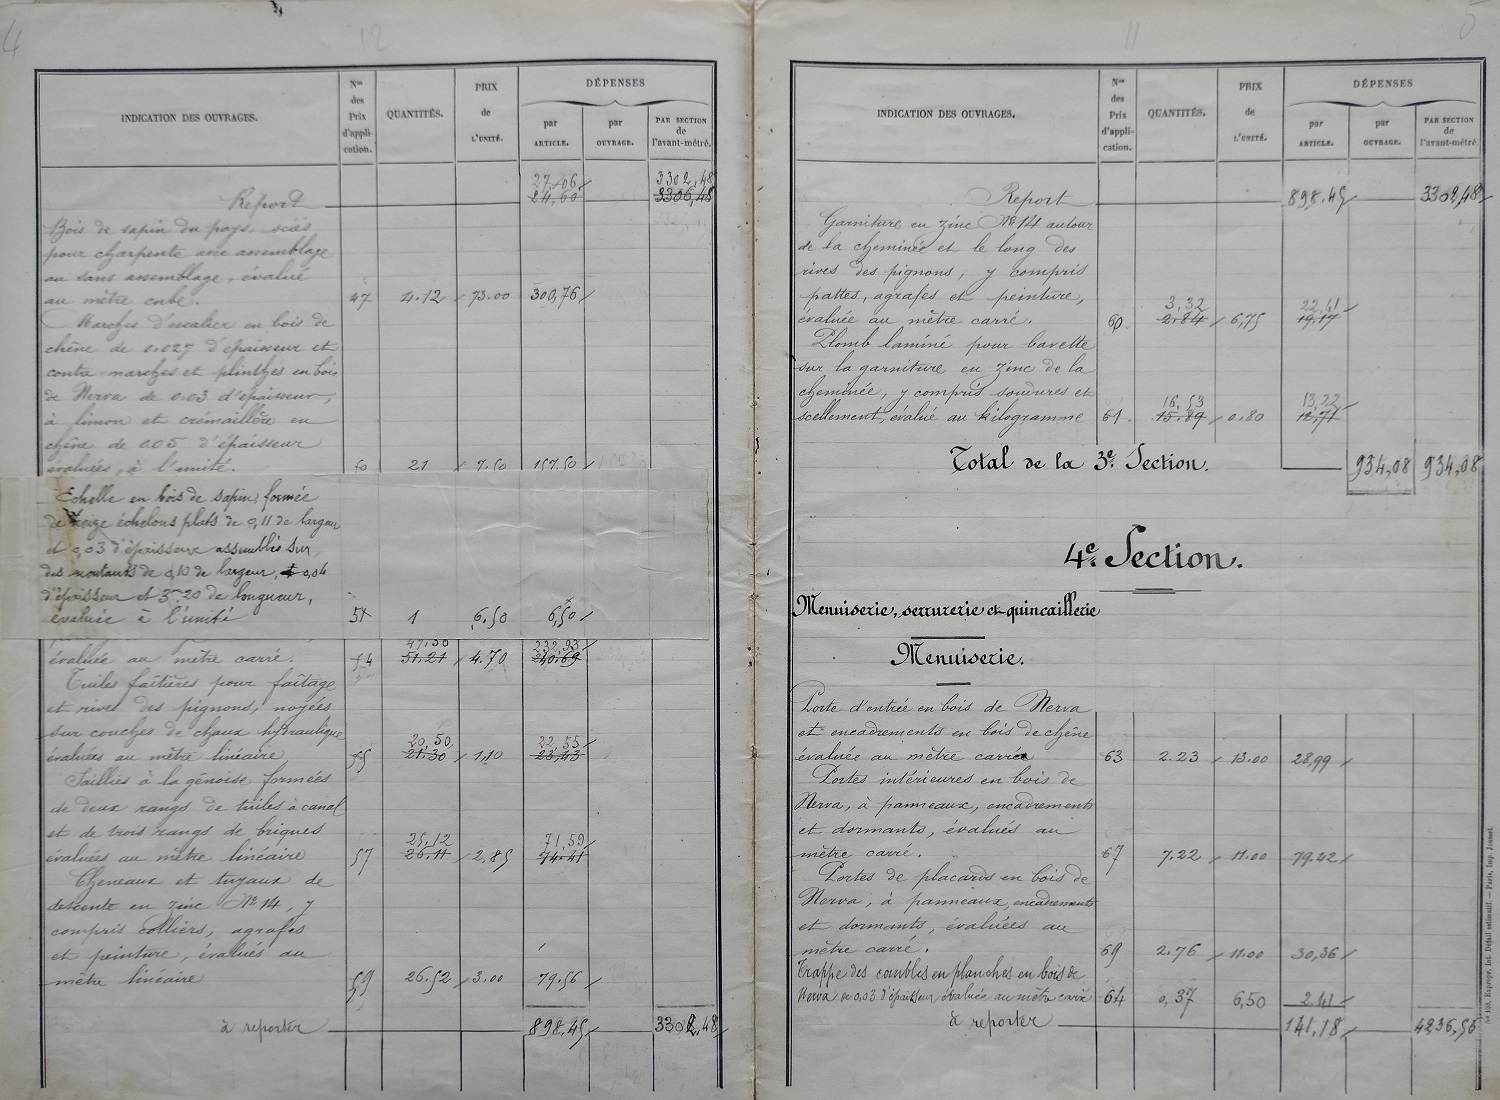 4
12
INDICATION DES OUVRAGES.
Nos des Prix d'appli- cation.
QUANTITÉS.
PRIX de L'UNITÉ.
DÉPENSES
par ARTICLE.
par OUVRAGE.
PAR SECTION de l'avant-métré.
27.06 3302,48
Report 24,60 3306,48
Bois de sapin du pays, sciés
pour charpente avec assemblage
ou sans assemblage, évalué
au mètre cube. 47 4.12 73.00 300,76
Marches d'escalier en bois de
chêne de 0.027 d'épaisseur et
contre-marches et plinthes en bois
de Nerva de 0.03 d'épaisseur,
à limon et crémaillère en
chêne de 0.05 d'épaisseur
évaluées, à l'unité. 50 21 7.50 157.50
Echelle en bois de sapin, formée
de treize échelons plats de 0,11 de largeur
et 0,03 d'épaisseur assemblés sur
des montants de 0,10 de largeur, 0,04
d'épaisseur et 3m20 de longueur,
évaluée à l'unité 51 1 6.50 6,50
47,50 232,93
évaluée au mètre carré. 54 51.21 4.70 240.69
Tuiles faîtières pour faîtage
et rives des pignons, noyées
sur couches de chaux hydraulique
20,50 22,55
évaluées au mètre linéaire 55 21.30 1,10 23,43
Saillies à la génoise formées
de deux rangs de tuiles à canal
et de trois rangs de briques
25,12 71,59
évaluées au mètre linéaire 57 26.11 2,85 74.41
Cheneaux et tuyaux de
descente en zinc No 14, y
compris colliers, agrafes
et peinture, évalués au
mètre linéaire 59 26.52 3.00 79.56
à reporter 898,45 3302,48
5
11
INDICATION DES OUVRAGES.
Nos des Prix d'appli- cation.
QUANTITÉS.
PRIX de L'UNITÉ.
DÉPENSES
par ARTICLE.
par OUVRAGE.
PAR SECTION de l'avant-métré.
Report 898.45 3302,48
Garniture en zinc No 14 autour
de la cheminée et le long des
rives des pignons, y compris
pattes, agrafes et peinture,
3,32 22,41
évaluée au mètre carré. 60 2.84 6,75 19.17
Plomb laminé pour bavette
sur la garniture en zinc de la
cheminée, y compris soudures et
16,53 13,22
scellement, évalué au kilogramme 61 15.89 0,80 12,71
Total de la 3e Section. 934,08 934,08
4e Section.
Menuiserie, serrurerie et quincaillerie
Menuiserie.
Porte d'entrée en bois de Nerva
et encadrements en bois de chêne
évaluée au mètre carré 63 2.23 13.00 28,99
Portes intérieures en bois de
Nerva, à panneaux, encadrements
et dormants, évalués au
mètre carré. 67 7.22 11.00 79.42
Portes de placards en bois de
Nerva, à panneaux, encadrements
et dormants, évaluées au
mètre carré. 69 2.76 11.00 30,36
Trappe des combles en planches en bois de
Nerva de 0,03 d'épaisseur évaluée au mètre carré 64 0,37 6,50 2.41
à reporter 141,18 4236,56
No 103. Expropr. Int. Détail estimatif. — Paris, Imp. Jousset.